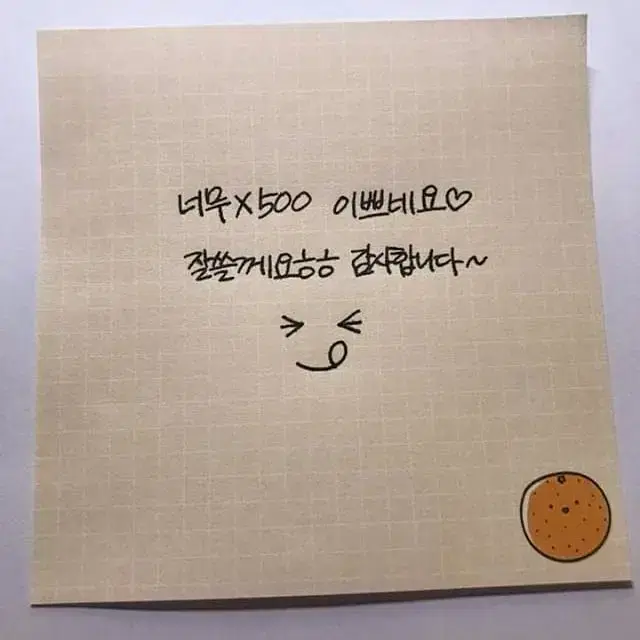 너무X500 이쁘네요♡
잘쓸께요ㅎㅎ 감사합니다~